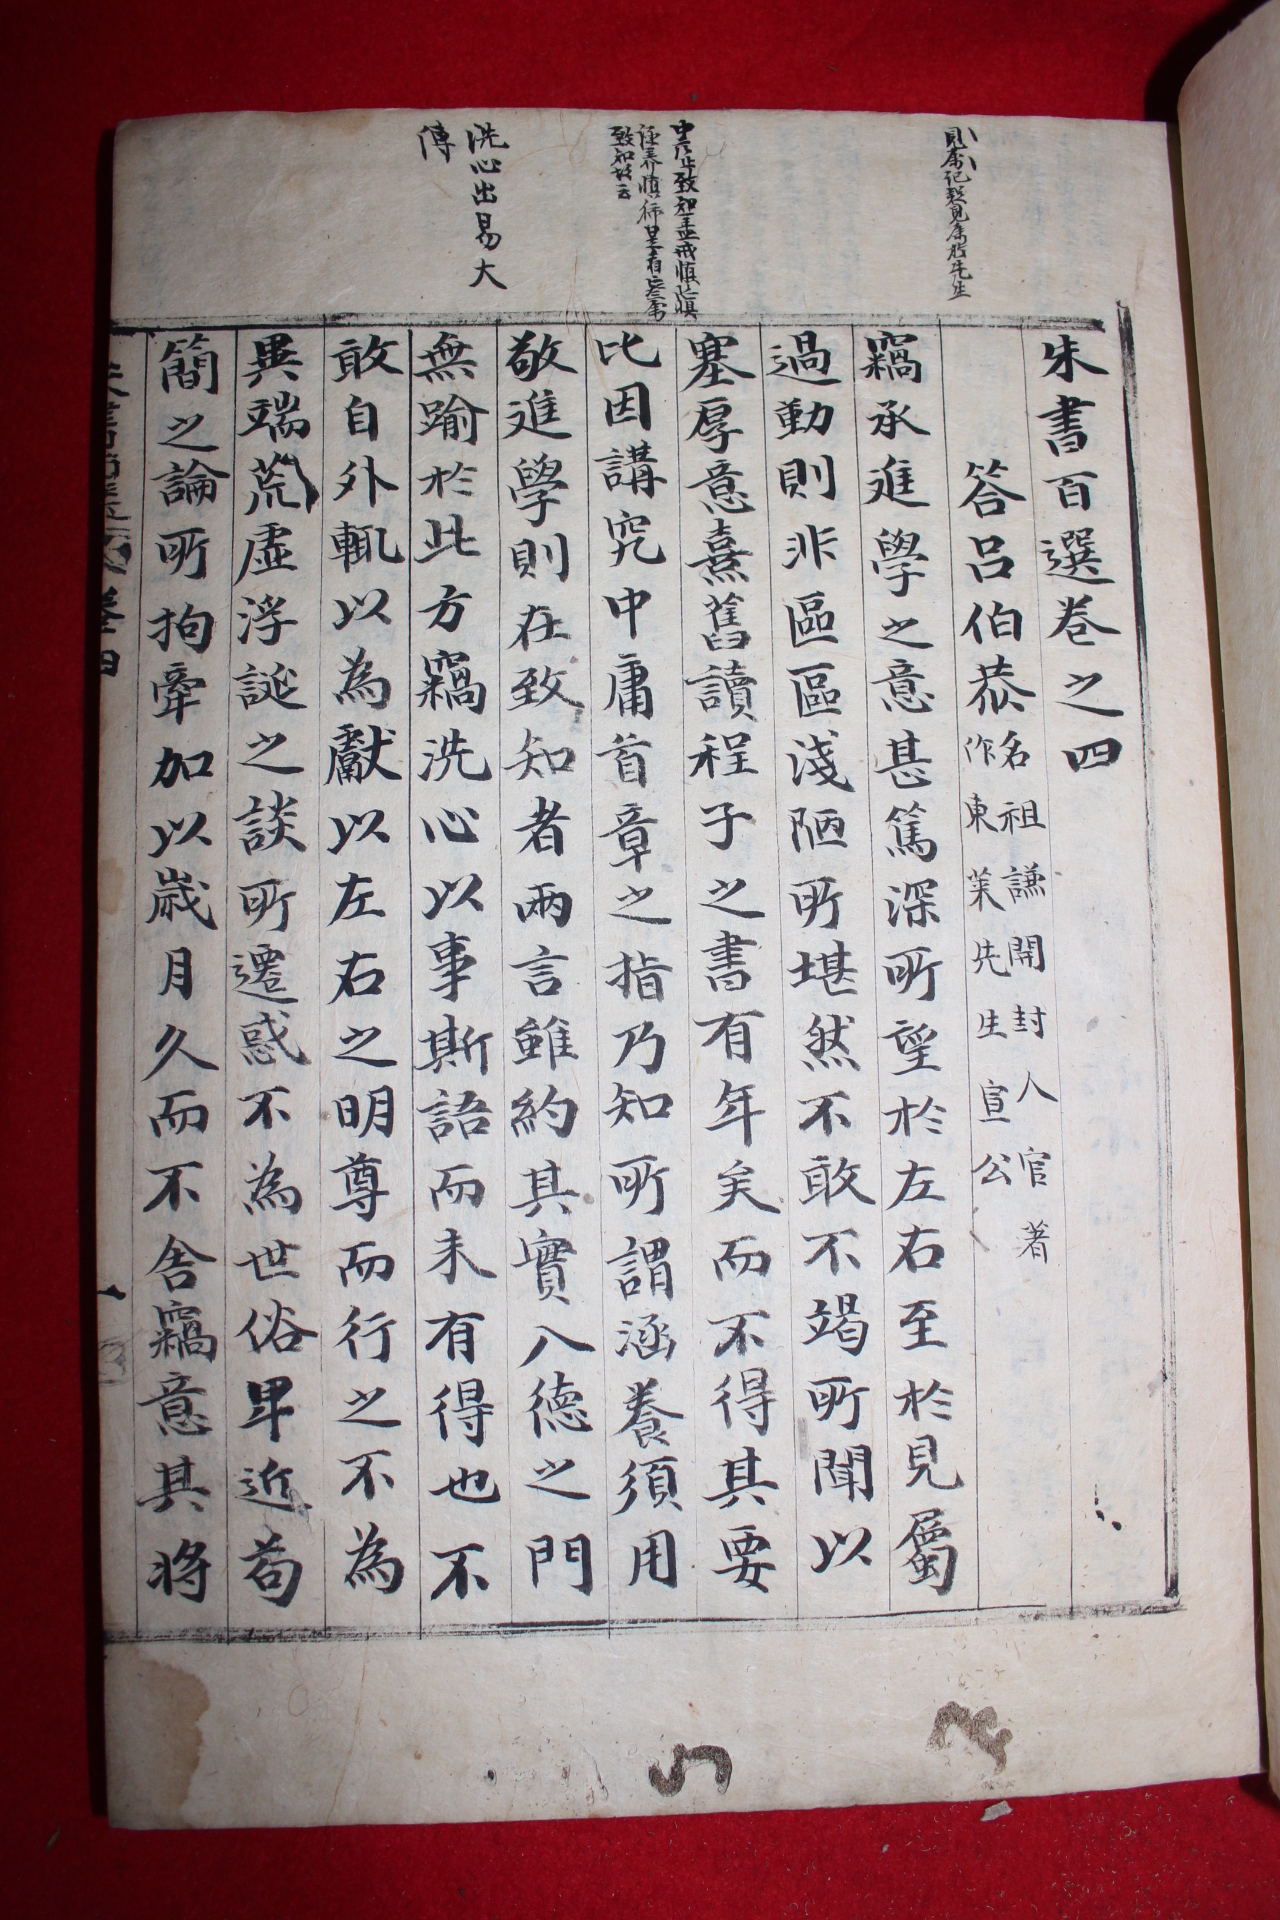 朱書百選卷之四
答呂伯恭
名祖謙開封人官著
作東萊先生宣公
竊承進學之意甚篤深所望於左右至於見屬
過勤則非區區淺陋所堪然不敢不竭所聞以
塞厚意熹舊讀程子之書有年矣而不得其要
比因講究中庸首章之指乃知所謂涵養須用
敬進學則在致知者兩言雖約其實入德之門
無踰於此方竊洗心以事斯語而未有得也不
敢自外輒以為獻以左右之明尊而行之不為
異端荒虛浮誕之談所遷惑不為世俗卑近苟
簡之論所拘牽加以歲月久而不舍竊意其將
洗心出易大
傳
卷四
一